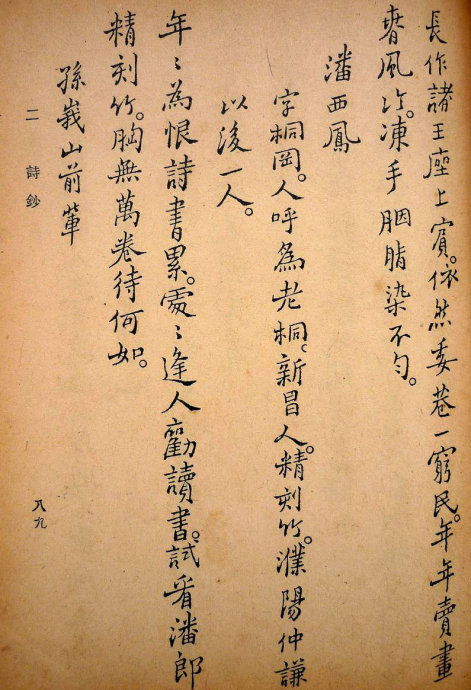 長作諸王座上賓。依然委巷一窮民。年年賣畫
春風冷。凍手胭脂染不勻。
潘西鳳
字桐岡。人呼為老桐。新昌人。精刻竹。濮陽仲謙
以後一人。
年〻為恨詩書累。處〻逢人勸讀書。試看潘郎
精刻竹。胸無萬卷待何如。
孫峩山前輩
二 詩鈔
八九